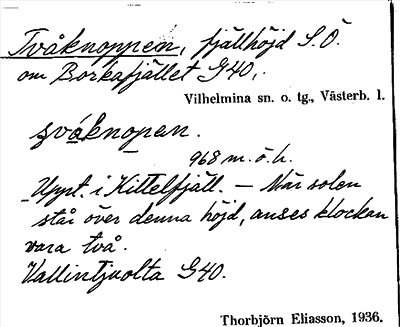 Tvåknoppen, fjällhöjd S.Ö.
om Borkafjället G40,.
Vilhelmina sn. o. tg., Västerb. l.
tvåknopen.
968 m.ö.h.
Uppt. i Kittelfjäll. – När solen
står över denna höjd, anses klockan
vara två.
Vallintjuolta G40.
Thorbjörn Eliasson, 1936.